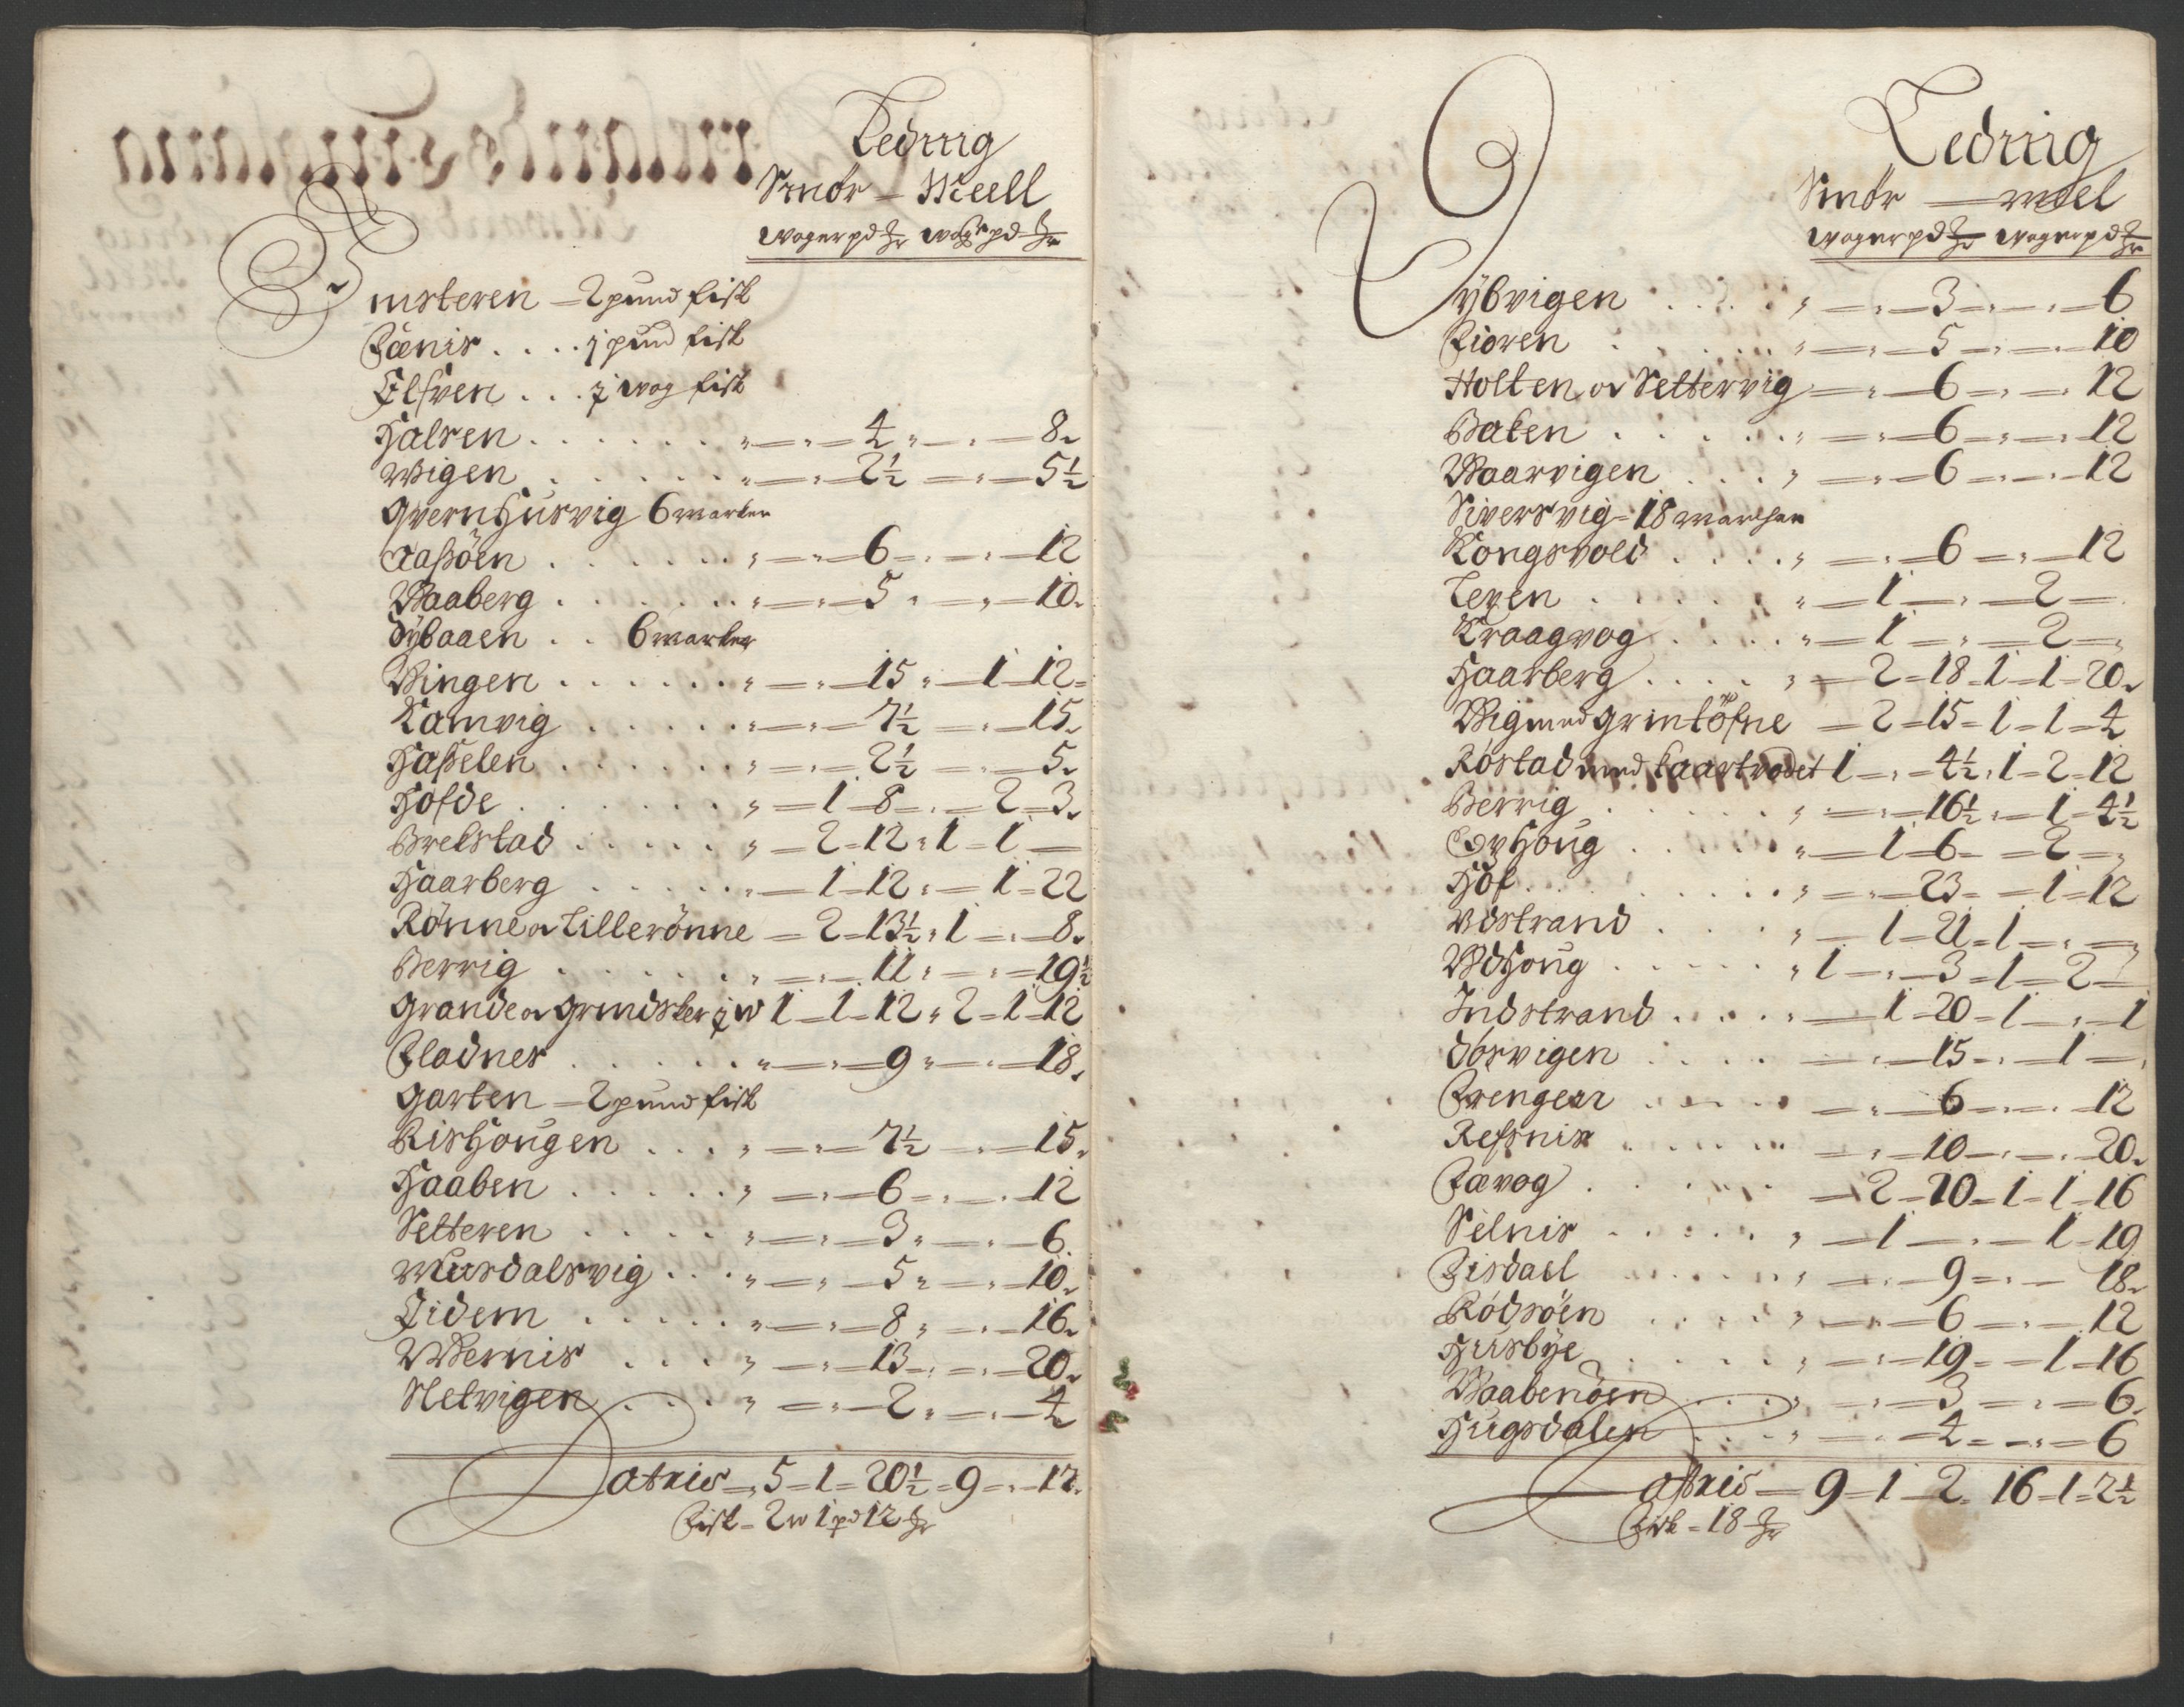 Leding
Smör – Meell
woger pd ℔r wogr pd ℔r
insteren – 2 pund fisk
Fænis . . . . j pund fisk
Elfven . . . j wog fisk
Halsen . . . . . . „ — „ — 4 „ — „ — 8„
Wigen . . . . . . „ — „ — 2½ — „ — 5½
Qvernhusvig 6 marker
Aasöen . . . . . . „ — „ — 6 — „ — „ — 12
Waaberg . . . . . . „ — „ — 5 „ — „ — 10„
Dybaaen . . 6 marker
Wingen . . . . . . „ — „ — 15 „ — 1 – 12 –
Kamvig . . . . . . „ — „ — 7½ — „ — 15„
Hasselen . . . . . . „ — „ — 2½ — „ — 5„
Höfde . . . . . . „ — 1 – 8 – „ — 2 – 3„
Brekstad . . . . . „ — 2 – 12 „ 1 – 1 —
Haarberg . . . . . „ — 1 – 12 „ — 1 – 22
Rönne o Lillerönne – 2 – 13½ „ 1 – „ – 8„
Berrig . . . . . . „ — „ — 11 „ — „ – 19½
Grande o Grindsker j w 1 – 1 – 12 „ 2 – 1 – 12
Fladnes . . . . . „ — „ — 9 „ — „ — 18„
Garten – 2 pund fisk
Rishougen . . . „ — „ — 7½ — „ — 15„
Haaben . . . . . „ — „ — 6 – „ — „ – 12
Setteren . . . . „ — „ — 3 „ — „ — 6
Mursdalsvig . . . „ — „ — 5 „ — „ — 10„
Eidem . . . . . „ — „ — 8 „ — „ — 16„
Wernis . . . . „ — „ — 13 – „ — „ – 20„
Sletvigen . . . . „ — „ — 2 „ — „ — 4
Latris – „ 5 – 1 – 20½ – 9 – „ – 12„
Fisk – 2 w 1 pd 12 ℔r
Ledmg
Smör — meel
woger pd ℔r woger pd ℔r
Dybvigen . . . . „ — „ — 3 — „ — „ — 6
Fioren . . . . . „ — „ — 5 — „ — „ — 10
Holten o Settervig — „ — 6 — „ — „ 12
Baken . . . . . „ — „ — 6 — „ — „ 12
Waarvigen . . . „ — „ — 6 — „ — „ – 12
Siversvig – 18 marcher
Kongsvold . . . . „ — „ — 6 — „ — 12
Leren . . . . . „ — 1 — „ — 2 —
Kraagvog . . . . „ — 1 — „ — 2 — „
Haarberg . . . . „ — 2 – 18 – 1 – 1 – 20„
Wig med Grintöfne – 2 – 15 – 1 – 1 – 4
Röstad med kaartrödet 1 – „ – 4½ „ 1 – 2 – 12
Berrig . . . . . „ — „ — 16½ „ — 1 – 4½
Ovhoug . . . . . „ — 1 – 6 — — 2 — „
Hof . . . . . . . „ — „ — 23 — — 1 – 12
Udstrand . . . . „ — 1 – 21 – 1 — „ — „
Udhoug . . . . . „ 1 — „ — 3 – 1 – 2 —
Indstrand . . . . . — 1 – 20 – 1 – „ – 1
Dörvigen . . . . — „ — 15 – „ — 1 — „
Frengen . . . . — „ — 6 — „ — „ 12
Refsnis . . . . . — „ — 10 — „ — „ 20„
Fævog . . . . . — 2 – 20 – 1 – 1 – 16
Selnis . . . . . „ — 1 — „ — 1 – 19
Fisdael . . . . . „ — „ — 9 — „ — 18„
Rödsöen . . . . „ — „ — 6 — „ — 12
Husbye . . . . . „ — „ — 19 – — 1 – 16
Waabenöen . . . . „ — „ — 3 — „ — 6„
Hugsdalen . . . . „ — „ — 4 – — „ — 6
Latris — 9 – 1 – 2 – 16 – 1 – 2½
Fisk – 18 ℔r